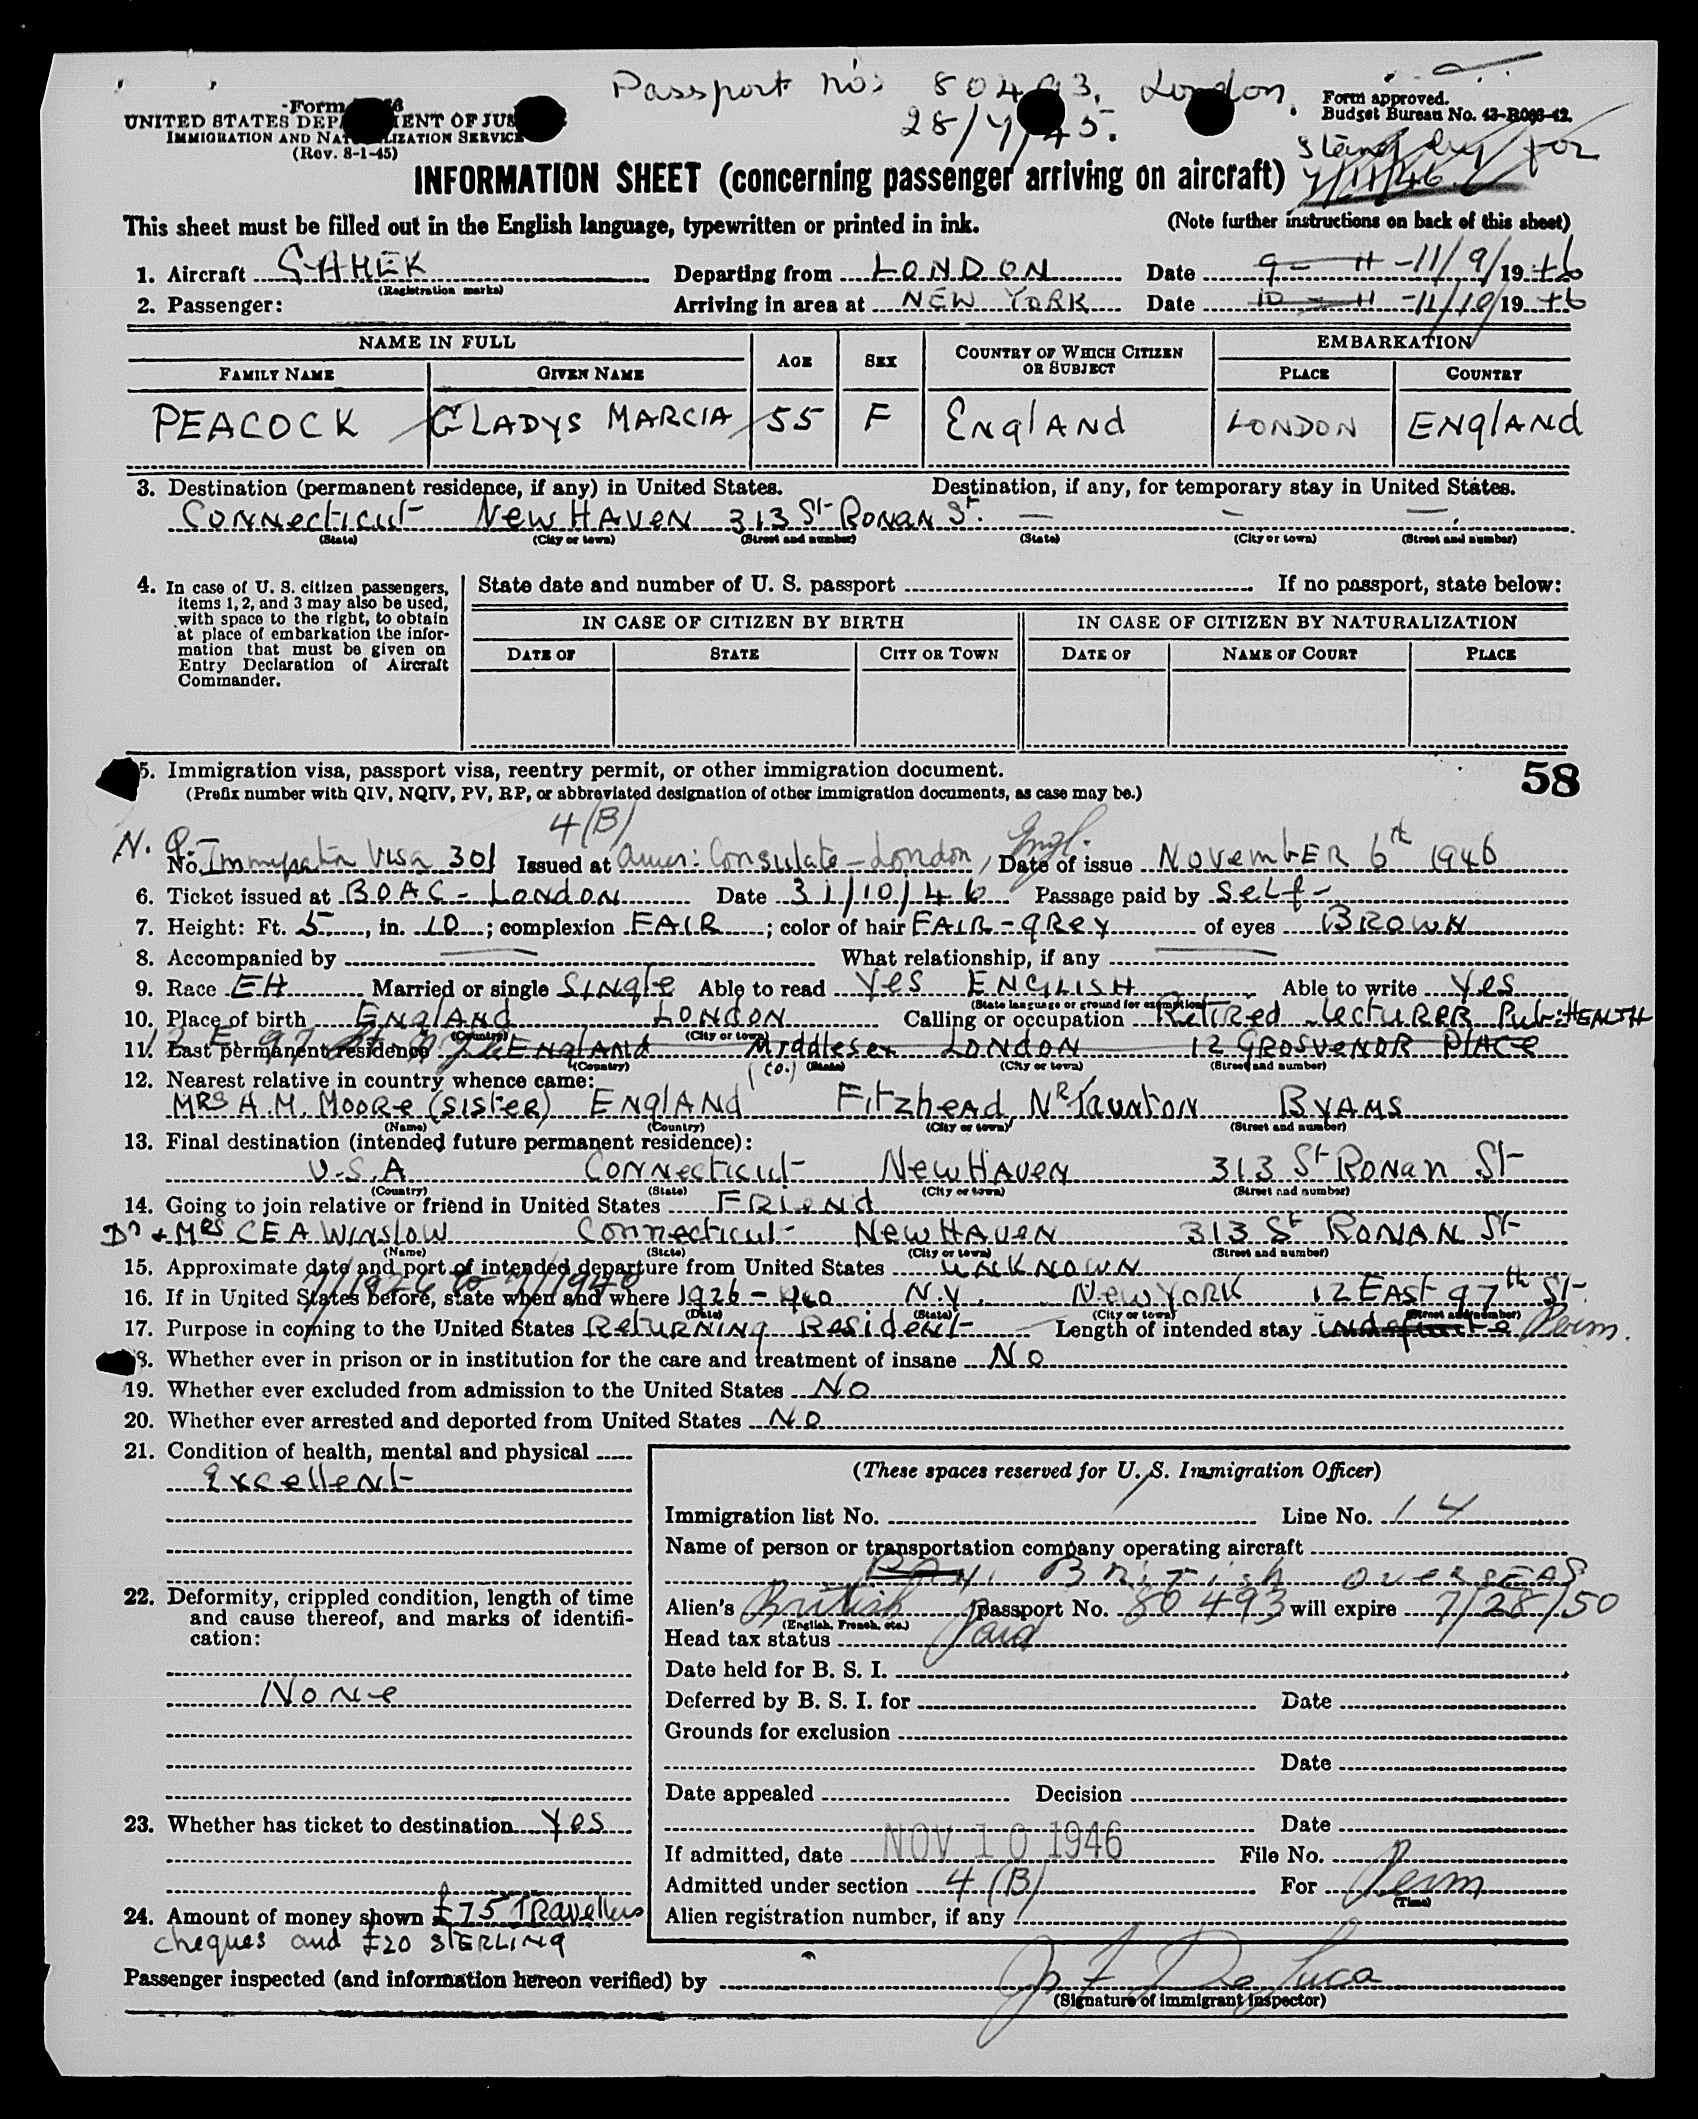 Passport No: 80493, London.
28/7/45.
Form
UNITED STATES DEP ENT OF JUS
IMMIGRATION AND NAT LIZATION SERVICE
(Rev. 8-1-45)
Form approved.
Budget Bureau No. 43-R066-42.
Stand by for
7/11/46.
INFORMATION SHEET (concerning passenger arriving on aircraft)
This sheet must be filled out in the English language, typewritten or printed in ink. (Note further instructions on back of this sheet)
1. Aircraft GAHEK Departing from LONDON Date 9 - 11 - 11/9/ 19 46
(Registration marks)
2. Passenger: Arriving in area at NEW YORK Date 10 - 11 - 11/10/ 19 46
NAME IN FULL AGE SEX COUNTRY OF WHICH CITIZEN OR SUBJECT EMBARKATION
FAMILY NAME GIVEN NAME PLACE COUNTRY
PEACOCK GLADYS MARCIA 55 F ENGLAND LONDON ENGLAND
3. Destination (permanent residence, if any) in United States. Destination, if any, for temporary stay in United States.
CONNECTICUT NEW HAVEN 313 ST RONAN ST. — — —
(State) (City or town) (Street and number) (State) (City or town) (Street and number)
4. In case of U. S. citizen passengers, items 1, 2, and 3 may also be used, with space to the right, to obtain at place of embarkation the information that must be given on Entry Declaration of Aircraft Commander.
State date and number of U. S. passport If no passport, state below:
IN CASE OF CITIZEN BY BIRTH IN CASE OF CITIZEN BY NATURALIZATION
DATE OF STATE CITY OR TOWN DATE OF NAME OF COURT PLACE
5. Immigration visa, passport visa, reentry permit, or other immigration document. 58
(Prefix number with QIV, NQIV, PV, RP, or abbreviated designation of other immigration documents, as case may be.)
4(B) Engl.
N. Q.
No. Immigration Visa 301 Issued at Amer: Consulate - London, Date of issue NOVEMBER 6th 1946
6. Ticket issued at BOAC - LONDON Date 31/10/46 Passage paid by SELF -
7. Height: Ft. 5, in. 10; complexion FAIR; color of hair FAIR - GREY of eyes BROWN
8. Accompanied by — What relationship, if any —
9. Race EH Married or single SINGLE Able to read YES ENGLISH Able to write YES
(State language or ground for exemption)
10. Place of birth ENGLAND LONDON Calling or occupation RETIRED LECTURER PUB: HEALTH
(Country) (City or town)
12 E 97
11. Last permanent residence ENGLAND MIDDLESEX LONDON 12 GROSVENOR PLACE
(Country) (Co.) (State) (City or town) (Street and number)
12. Nearest relative in country whence came:
MRS H. M. MOORE (SISTER) ENGLAND FITZHEAD NR TAUNTON BYAMS
(Name) (Country) (City or town) (Street and number)
13. Final destination (intended future permanent residence):
U.S.A CONNECTICUT NEW HAVEN 313 ST RONAN ST
(Country) (State) (City or town) (Street and number)
14. Going to join relative or friend in United States FRIEND
Dr + MRS CEA WINSLOW CONNECTICUT NEW HAVEN 313 ST RONAN ST
(Name) (State) (City or town) (Street and number)
15. Approximate date and port of intended departure from United States UNKNOWN
7/1926 to 7/1940
16. If in United States before, state when and where 1926 - 40 N.Y. NEW YORK 12 EAST 97th ST
(Date) (State) (City or town) (Street and number)
17. Purpose in coming to the United States RETURNING RESIDENT Length of intended stay indefinite Perm.
18. Whether ever in prison or in institution for the care and treatment of insane NO
19. Whether ever excluded from admission to the United States NO
20. Whether ever arrested and deported from United States NO
21. Condition of health, mental and physical
Excellent
22. Deformity, crippled condition, length of time and cause thereof, and marks of identification:
NONE
23. Whether has ticket to destination YES
24. Amount of money shown £75 Travellers
cheques and £20 STERLING
(These spaces reserved for U. S. Immigration Officer)
Immigration list No. Line No. 14
Name of person or transportation company operating aircraft
British Overseas
Alien's British passport No. 80493 will expire 7/28/50
(English, French, etc.)
Head tax status Paid
Date held for B. S. I.
Deferred by B. S. I. for Date
Grounds for exclusion
Date
Date appealed Decision
Date
If admitted, date NOV 10 1946 File No.
Admitted under section 4(B) For Perm
(Time)
Alien registration number, if any
Passenger inspected (and information hereon verified) by J F De Luca
(Signature of immigrant inspector)